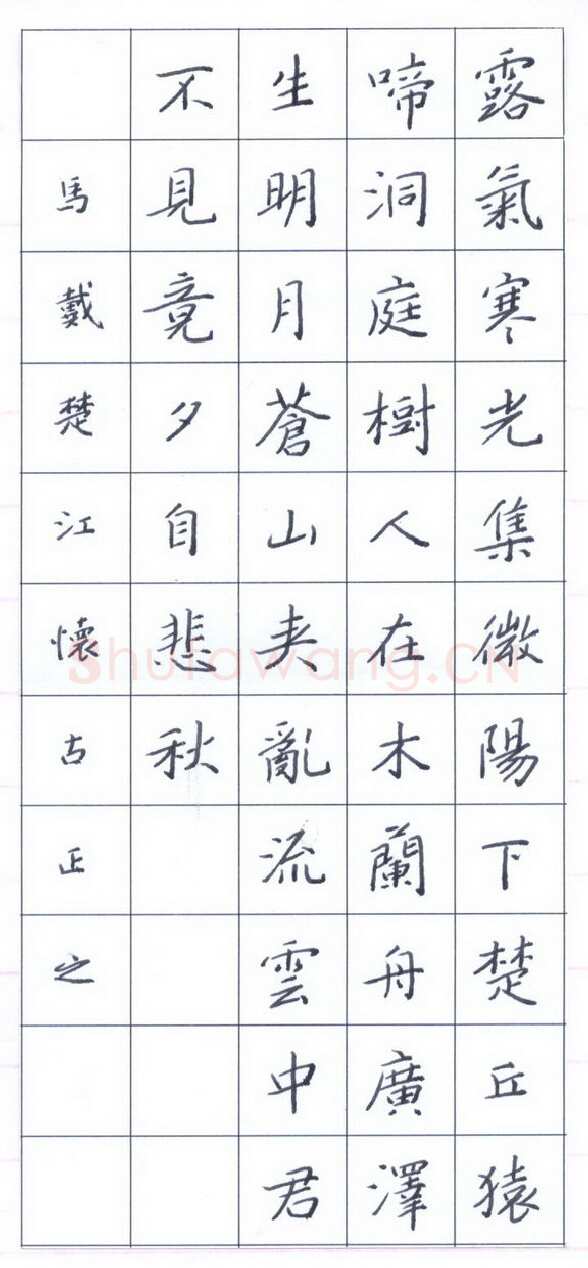 露氣寒光集微陽下楚丘猿
啼洞庭樹人在木蘭舟廣澤
生明月蒼山夹亂流雲中君
不見竟夕自悲秋
馬戴楚江懷古正之
Shufawang.CN